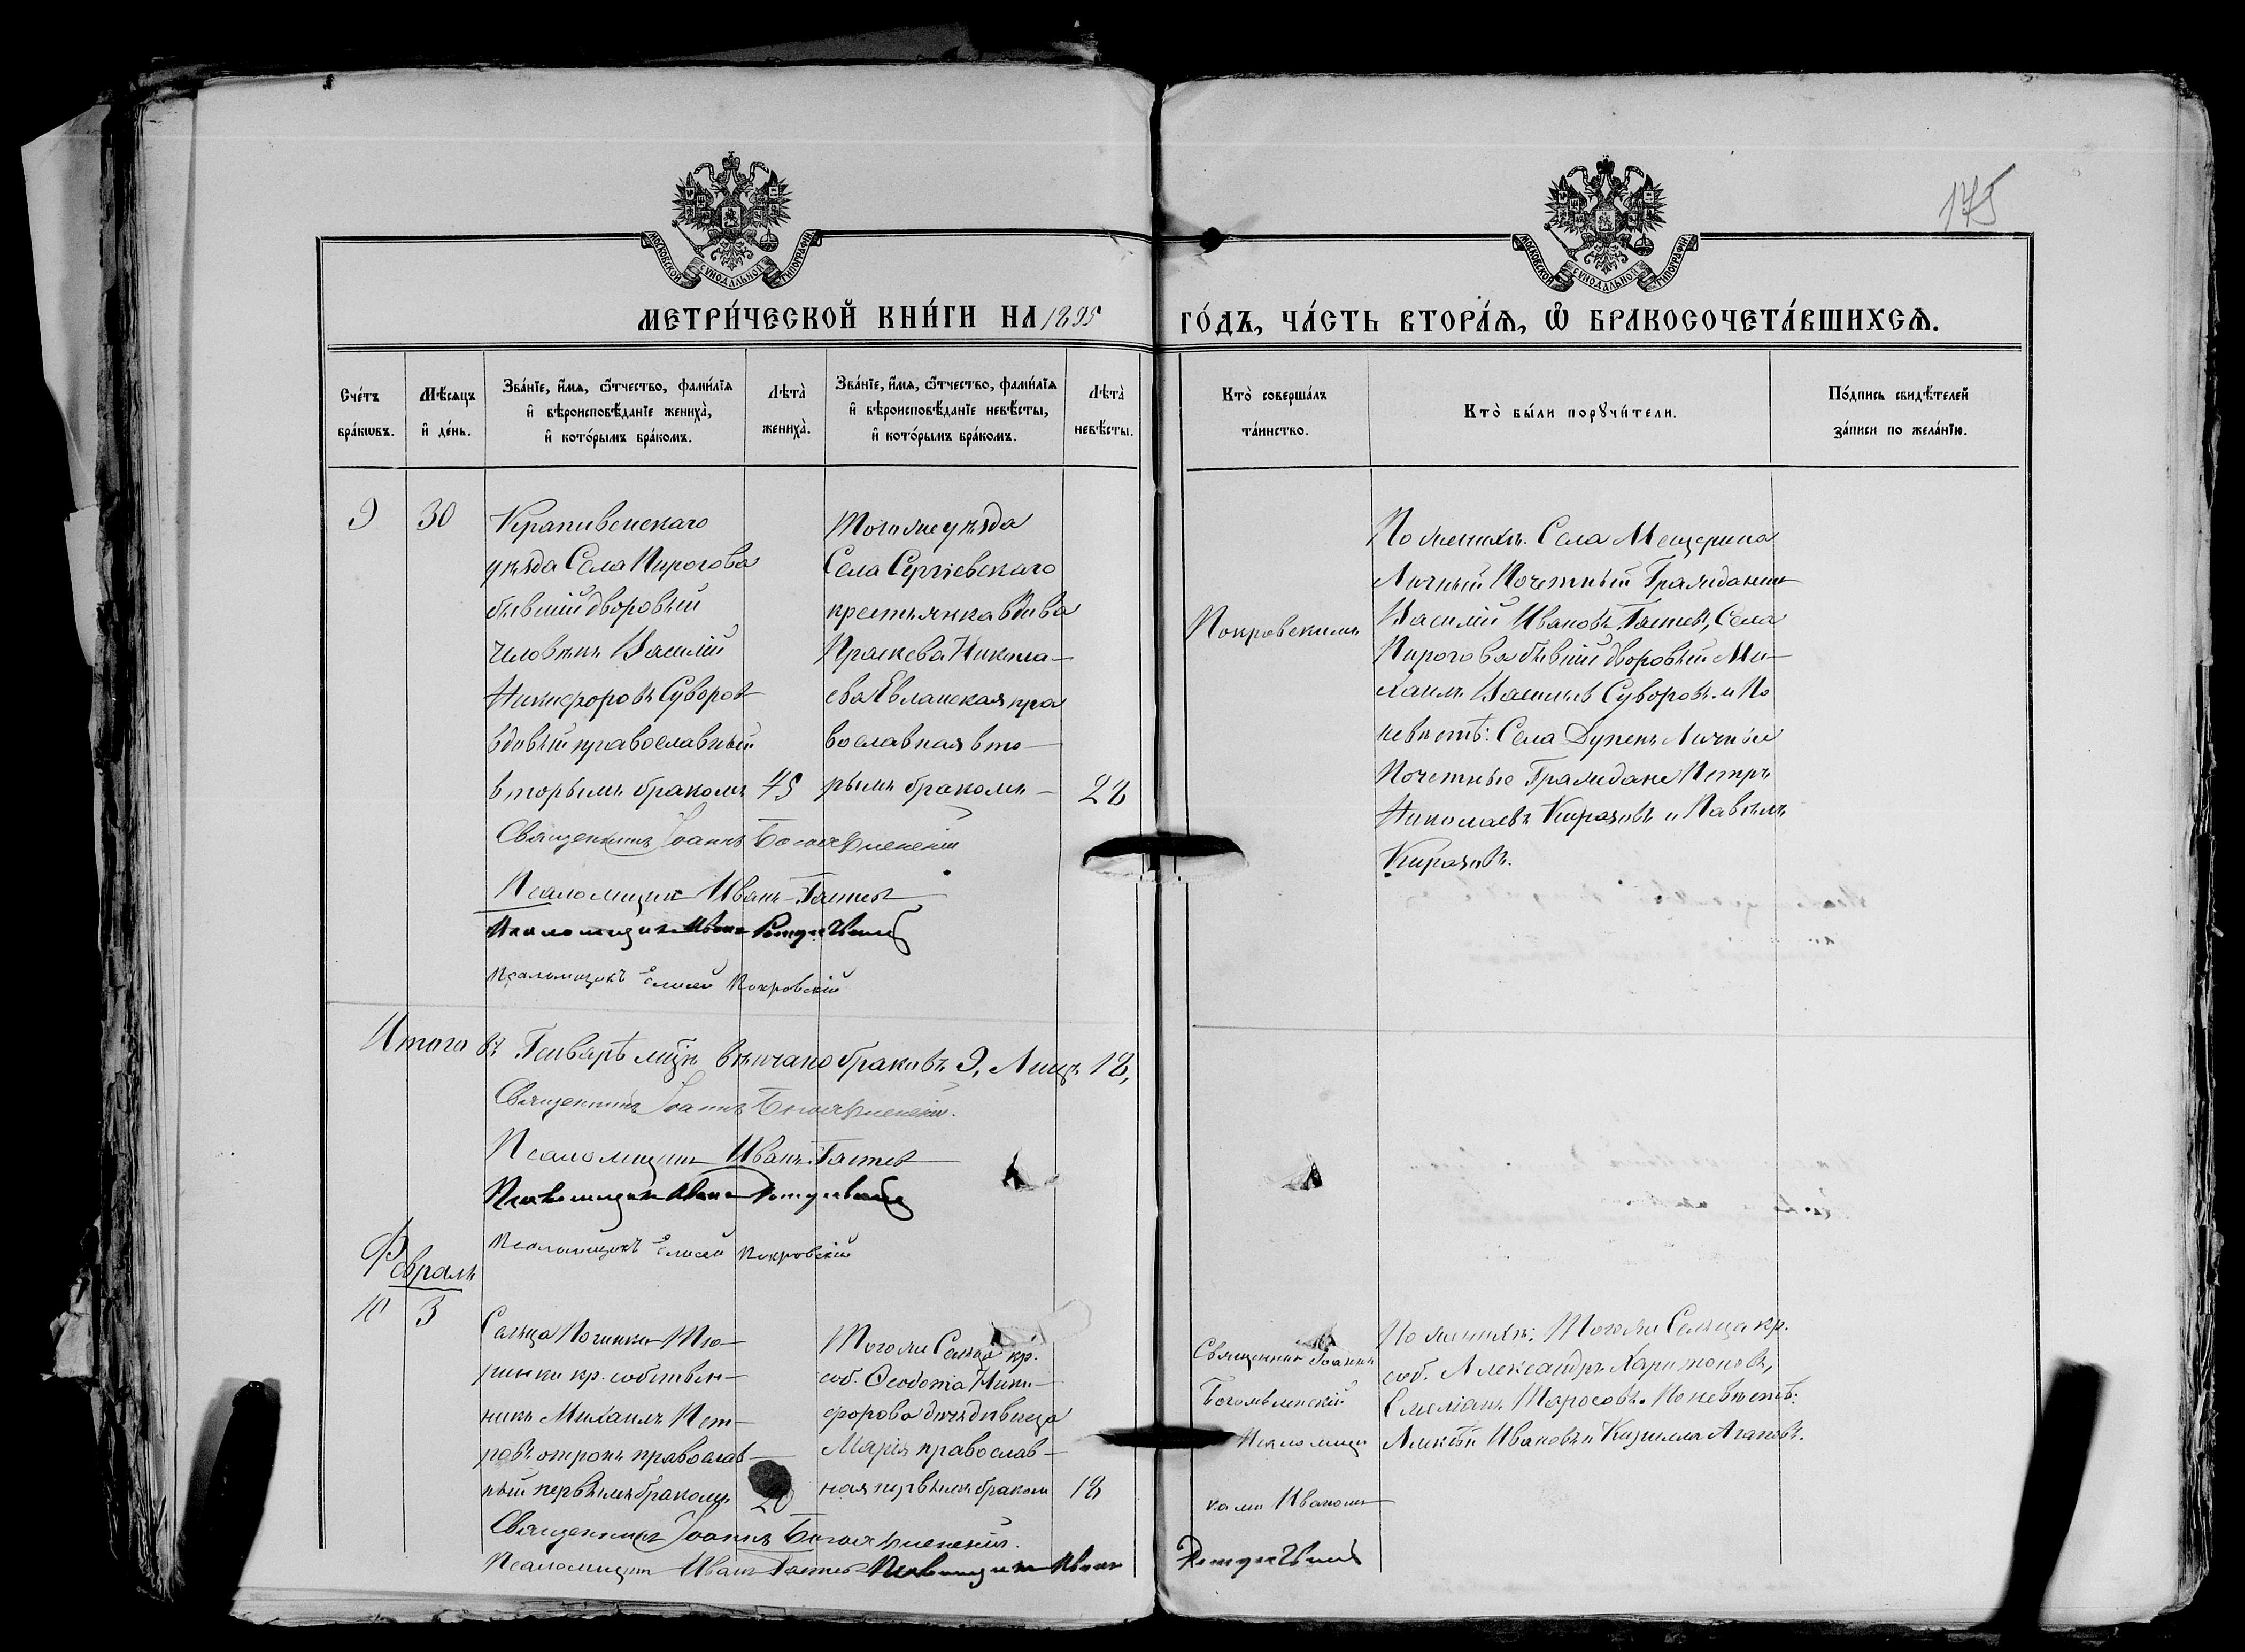 175
МОСКОВСКОЙ СѴНОДАЛЬНОЙ ТИПОГРАФІИ
МОСКОВСКОЙ СѴНОДАЛЬНОЙ ТИПОГРАФІИ
МЕТРИ́ЧЕСКОЙ КНИ́ГИ НА 1895 ГО́ДЪ, ЧА́СТЬ ВТОРА́Ѧ, Ѡ҆ БРАКОСОЧЕТА́ВШИХСѦ.
Сче́тъ бра́кωвъ.
Мѣ́сяцъ и҆ де́нь.
Зва́нїе, и҆́мѧ, ѻ҆́тчество, фами́лїѧ
и҆ вѣроисповѣ́данїе жениха̀,
и҆ кото́рымъ бра́комъ.
Лѣта̀ жениха̀.
Зва́нїе, и҆́мѧ, ѻ҆́тчество, фами́лїѧ
и҆ вѣроисповѣ́данїе невѣ́сты,
и҆ кото́рымъ бра́комъ.
Лѣта̀ невѣ́сты.
Кто̀ соверша́лъ та́инство.
Кто̀ бы́ли порꙋчи́тели.
По́дпись свидѣ́телей за́писи по жела́нїю.
9
30
Крапивенскаго
уѣзда Села Пирогова
бывшій дворовый
человѣкъ Василій
Никифоровъ Суворовъ
вдовый православный
вторымъ бракомъ
45
Того же уѣзда
Села Сергіевскаго
крестьянка вдова
Праскева Никола-
ева Евланская пра
вославная вто-
рымъ бракомъ
28
Покровскимъ
По женихѣ: Села Мещерина
Личный Почетный Гражданинъ
Василій Ивановъ Гастевъ, Села
Пирогова бывшій дворовый Ми-
хаилъ Васильевъ Суворовъ. и По
невѣстѣ: Села Дупенъ Личные
Почетные Граждане Петръ
Николаевъ и Павелъ
Священникъ Іоаннъ Богоявленскій
Псаломщикъ Иванъ Гастевъ
Псаломщикъ Иванъ
Псаломщикъ Елисей Покровскій
Итого въ Генварѣ мѣсяцѣ вѣнчано браковъ 9, Лицъ 18,
Священникъ Іоаннъ Богоявленскій.
Псаломщикъ Иванъ Гастевъ
Псаломщикъ Иванъ
Псаломщикъ Елисей Покровскій
Февраль
10
3
Сельца Починки Тю-
ринки кр. собствен-
никъ Михаилъ Пет-
ровъ отрокъ православ-
ный первымъ бракомъ
20
Того же Сельца кр.
соб. Ѳеодота Ники-
форова дочь дѣвица
Марія православ-
ная первымъ бракомъ
18
Священникъ Іоаннъ
Богоявленскій
Псаломщи
ками Иваномъ
По женихѣ: Того же Сельца кр.
соб. Александръ Харитоновъ,
Емеліанъ Тарасовъ. По невѣстѣ:
Алексѣй Ивановъ и Кирилла Агаповъ.
Священникъ Іоаннъ Богоявленскій.
Псаломщикъ Иванъ Гастевъ Псаломщикъ Иванъ